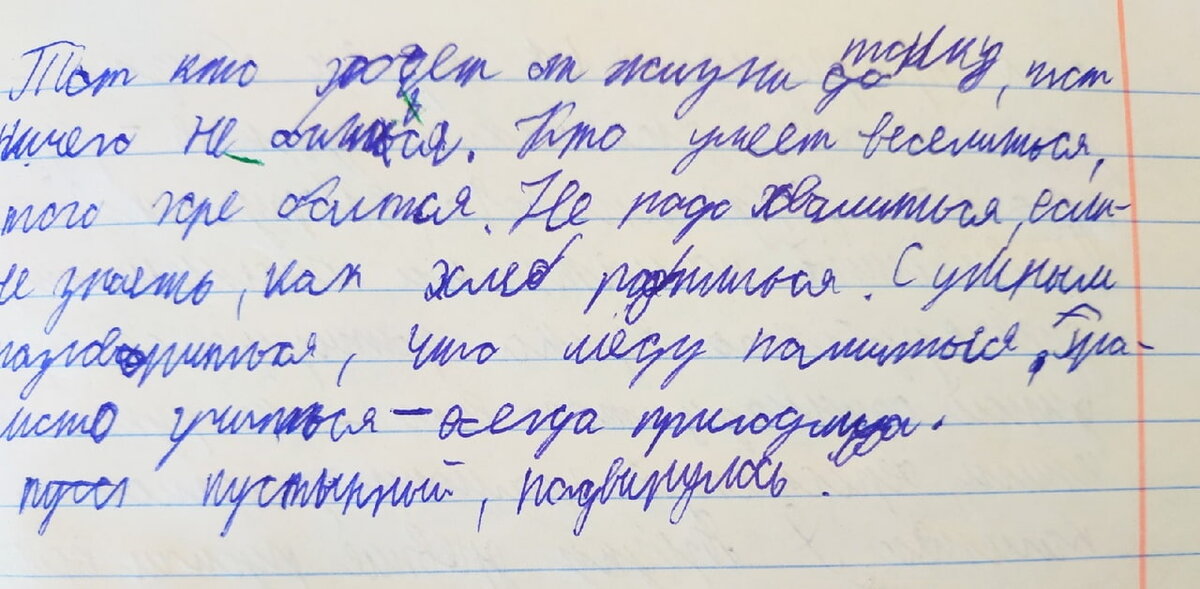 Тот кто ходет от жизни до танку, тот
ничего не боится. Кто умеет веселиться,
того горе боится. Не надо хвалиться, если
не знаеть, как хлеб родиться. С умным
разговориться, что мёду напиться, Гра-
мсто учиться - всегда пригодица.
пусы пустынный, надвинулось.